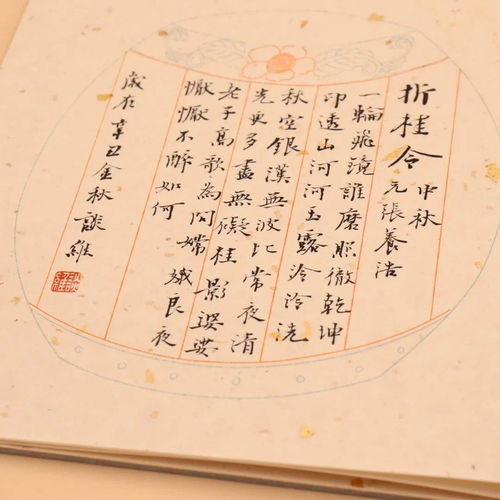 折桂令
中秋
元張養浩
一輪飛鏡誰磨照徹乾坤
印透山河河玉露泠泠洗
秋空銀漢無波比常夜清
光更多盡無礙桂影婆娑
老子高歌為問嫦娥良夜
懨懨不醉如何
歲在辛丑金秋談維